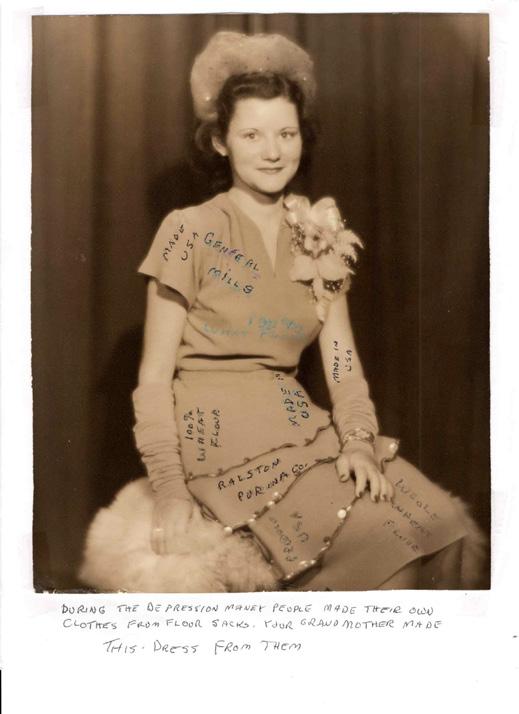 MADE
USA
GENERAL
MILLS
100%
MADE IN
USA
MADE IN
USA
100%
WHEAT
FLOUR
RALSTON
PURINA CO.
WHOLE
WHEAT
FLOUR
DURING THE DEPRESSION MANEY PEOPLE MADE THEIR OWN
CLOTHES FROM FLOUR SACKS. YOUR GRANDMOTHER MADE
THIS. DRESS FROM THEM